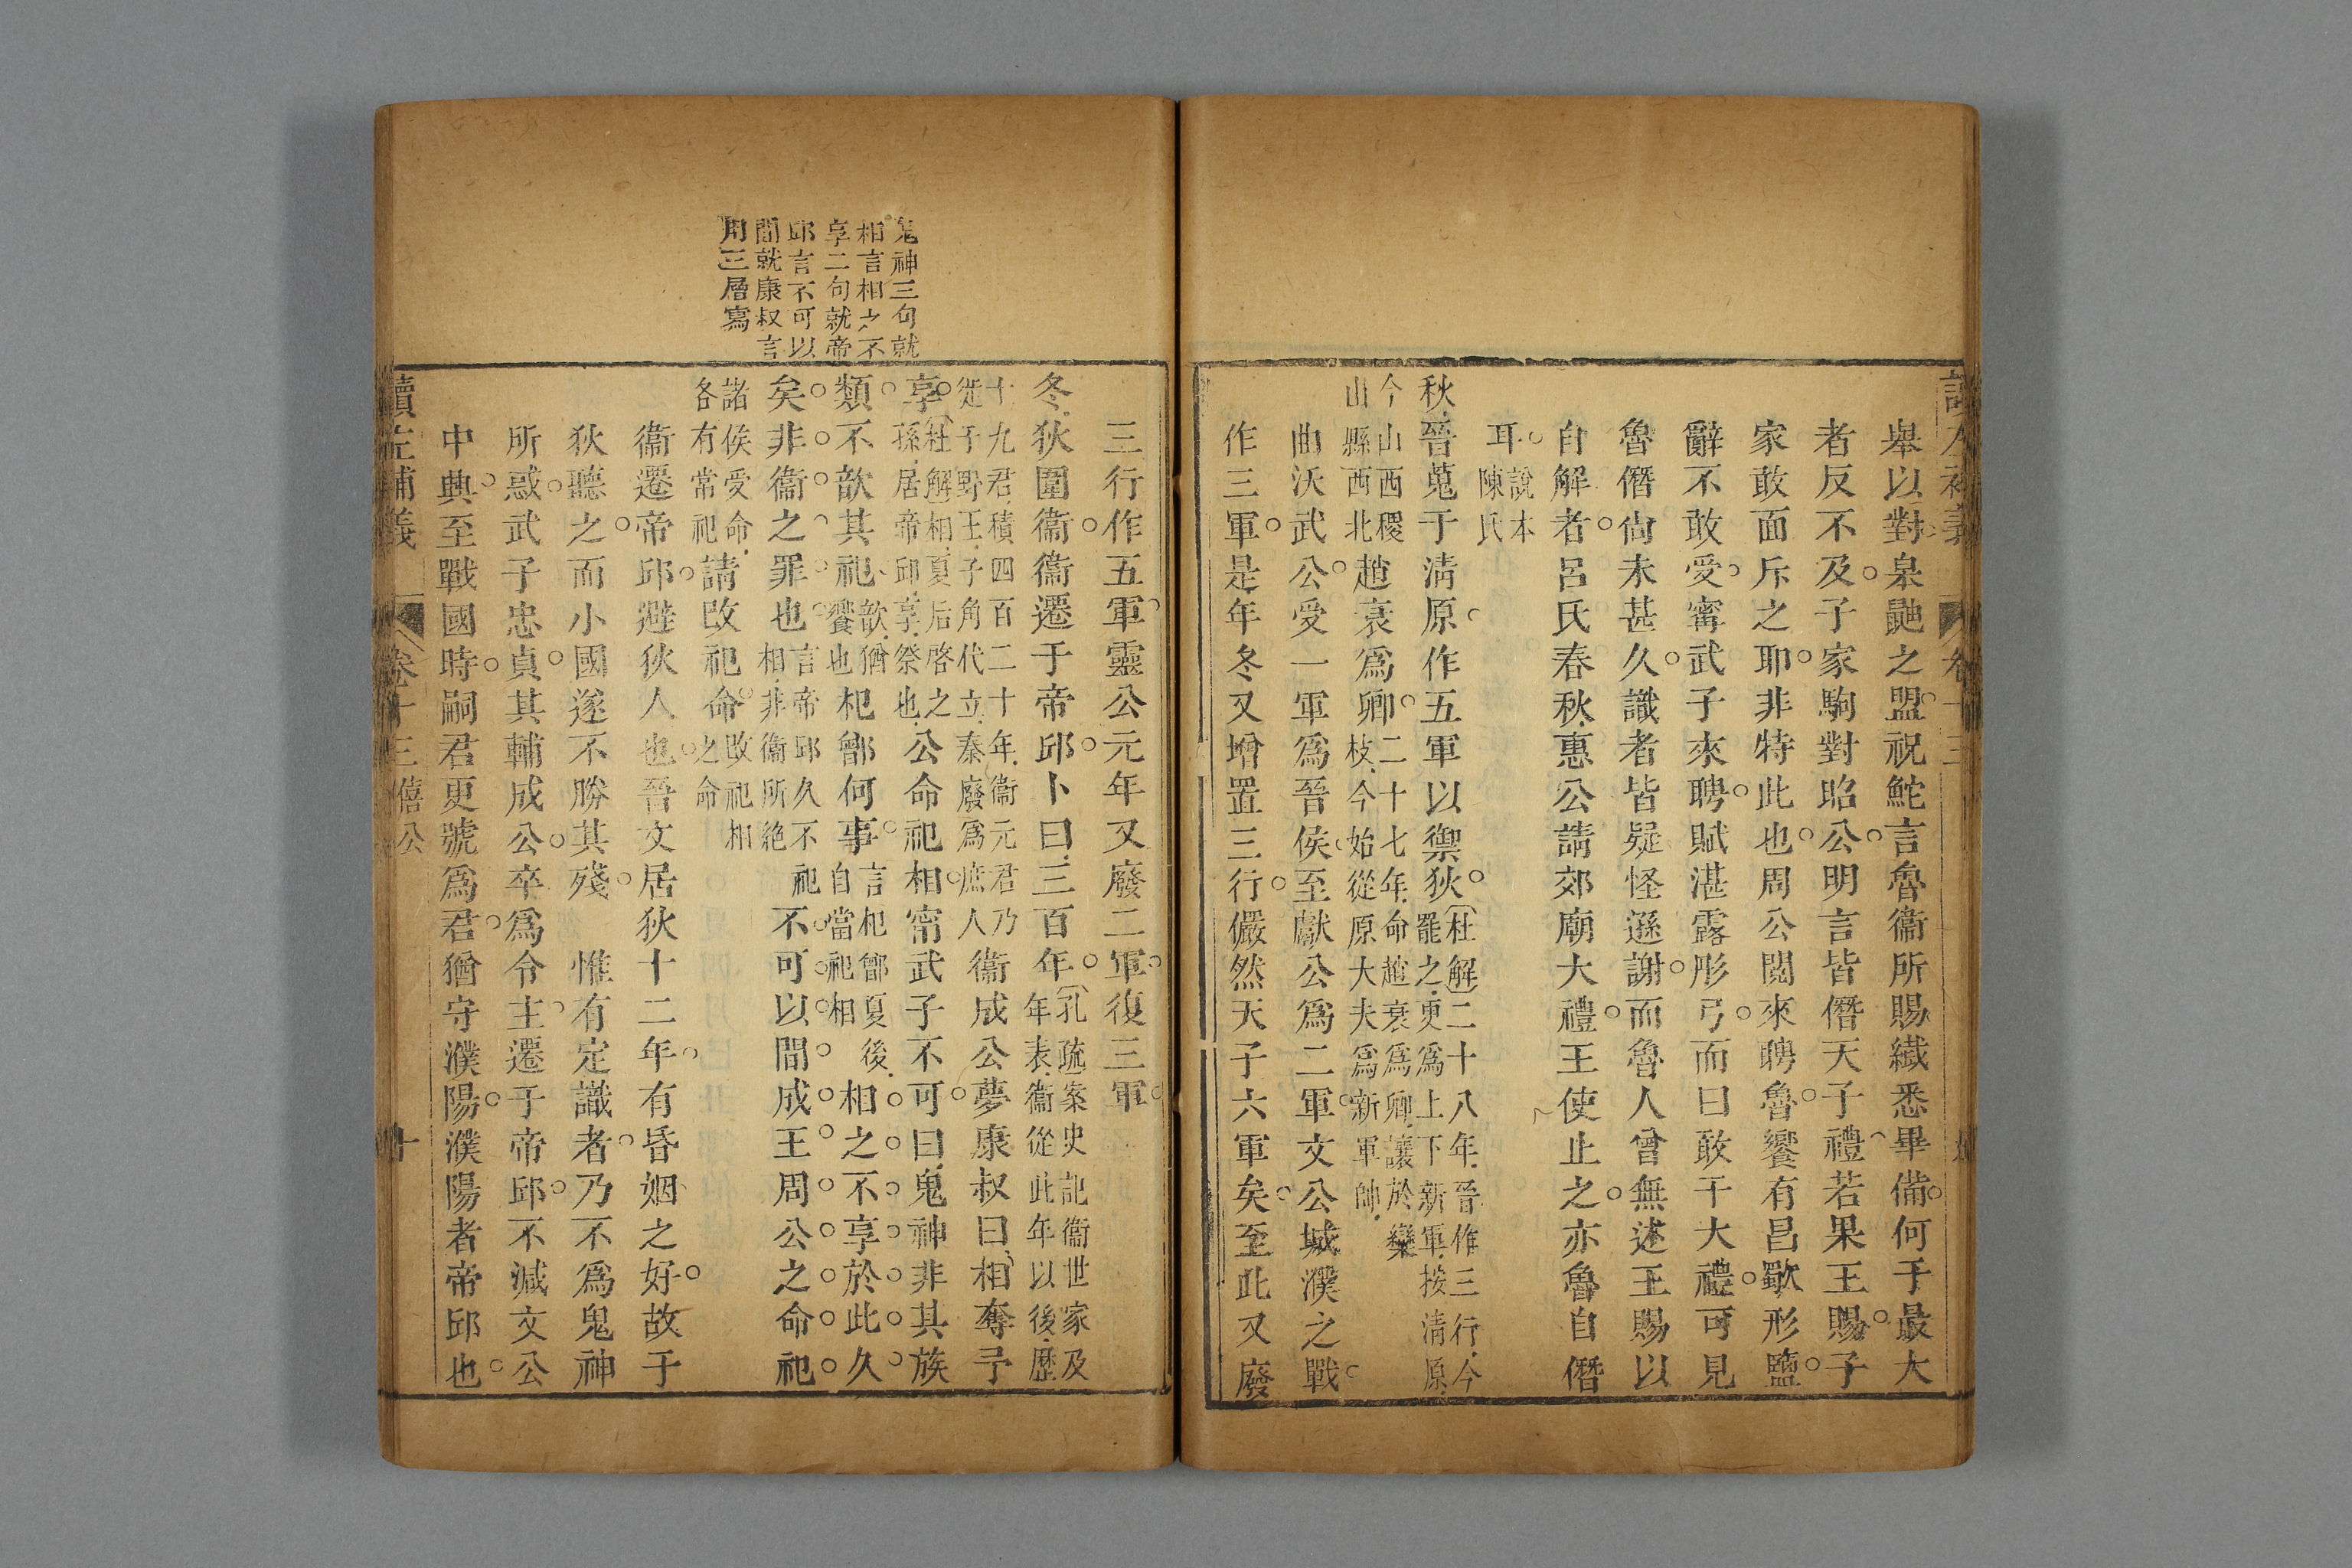 舉以對臯鼬之盟祝鮀言魯衞所賜纎悉畢備何于最大
者反不及子家駒對昭公明言皆僭天子禮若果王賜子
家敢面斥之耶非特此也周公閱來聘魯饗有昌歜形鹽
辭不敢受甯武子來聘賦湛露彤弓而曰敢干大禮可見
魯僭尙未甚久識者皆疑怪遜謝而魯人曾無述王賜以
自解者呂氏春秋惠公請郊廟大禮王使止之亦魯自僭
耳
說本
陳氏
秋晉蒐于淸原作五軍以禦狄
杜解二十八年晉作三行今
罷之更爲上下新軍按淸原
今山西稷
山縣西北
趙衰爲卿
二十七年命趙衰爲卿讓於欒
枝今始從原大夫爲新軍帥
曲沃武公受一軍爲晉侯至獻公爲二軍文公城濮之戰
作三軍是年冬又增置三行儼然天子六軍矣至此又廢
三行作五軍靈公元年又廢二軍復三軍
冬狄圍衞衞遷于帝邱卜曰三百年
孔疏案史記衞世家及
年表衞從此年以後歷
十九君積四百二十年衞元君乃
從子野王子角代立秦廢爲庶人
衞成公夢康叔曰相奪予
享
杜解相夏后啓之
孫居帝邱享祭也
公命祀相甯武子不可曰鬼神非其族
類不歆其祀
歆猶
饗也
杞鄫何事
言杞鄫夏後
自當祀相
相之不享於此久
矣非衞之罪也
言帝邱久不祀
相非衞所絶
不可以間成王周公之命祀
諸侯受命
各有常祀
請改祀命
改祀相
之命
衞遷帝邱避狄人也吾文居狄十二年有昏姻之好故于
狄聽之而小國遂不勝其殘 惟有定識者乃不爲鬼神
所惑武子忠貞其輔成公卒爲令主遷于帝邱不減文公
中興至戰國時嗣君更號爲君猶守濮陽濮陽者帝邱也
鬼神三句就
相言相之不
享二句就帝
邱言不可以
間就康叔言
用三層寫
讀左補義 卷十三 僖公 十